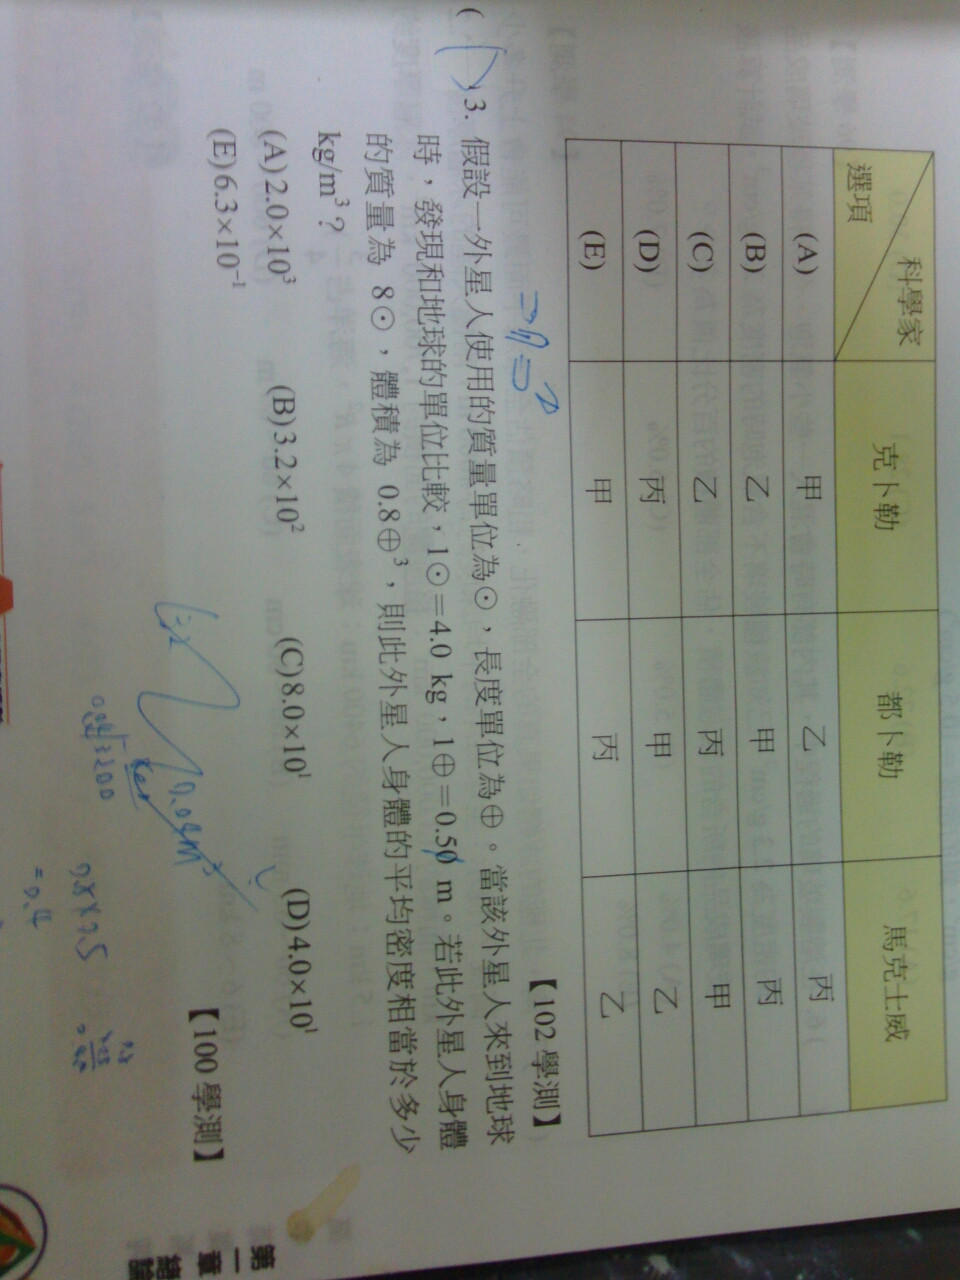 科學家
選項
克卜勒
都卜勒
馬克士威
(A) 甲 乙 丙
(B) 乙 甲 丙
(C) 乙 丙 甲
(D) 丙 甲 乙
(E) 甲 丙 乙
【102 學測】
( )3. 假設一外星人使用的質量單位為⊙，長度單位為⊕。當該外星人來到地球
時，發現和地球的單位比較，1⊙=4.0 kg，1⊕=0.50 m。若此外星人身體
的質量為 8⊙，體積為 0.8⊕³，則此外星人身體的平均密度相當於多少
kg/m³？
(A)2.0×10³ (B)3.2×10² (C)8.0×10¹ (D)4.0×10¹
(E)6.3×10⁻¹
【100 學測】
0.8×0.5
=0.4
第一章
緒論